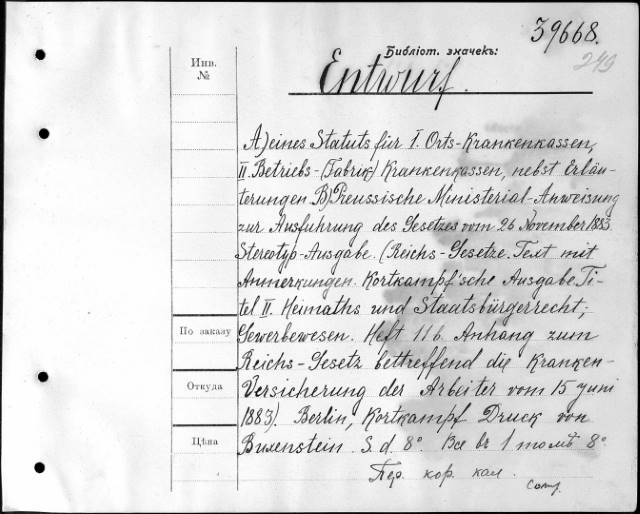 39668.
Библіот. значекъ:
249
Инв.
№
Entwurf.
A) eines Statuts für I. Orts-Krankenkassen,
II. Betriebs-(Fabrik) Krankenkassen, nebst Erläu-
terungen B) Preussische Ministerial-Anweisung
zur Ausfuhrung des Gesetzes vom 26 November 1883.
Stereotyp-Ausgabe. (Reichs-Gesetze. Text mit
Anmerkungen. Kortkampf'sche Ausgabe Ti-
tel II. Heimaths und Staatsbürgerrecht;
По заказу
Gewerbewesen. Heft 11 b. Anhang zum
Reichs-Gesetz bettreffend die Kranken-
Откуда
Versicherung der Arbeiter vom 15 juni
1883). Berlin, Kortkampf Druck von
Цѣна
Buxenstein. S. d. 8°. Все въ 1 томѣ 8°.
Пер. кор. кал.